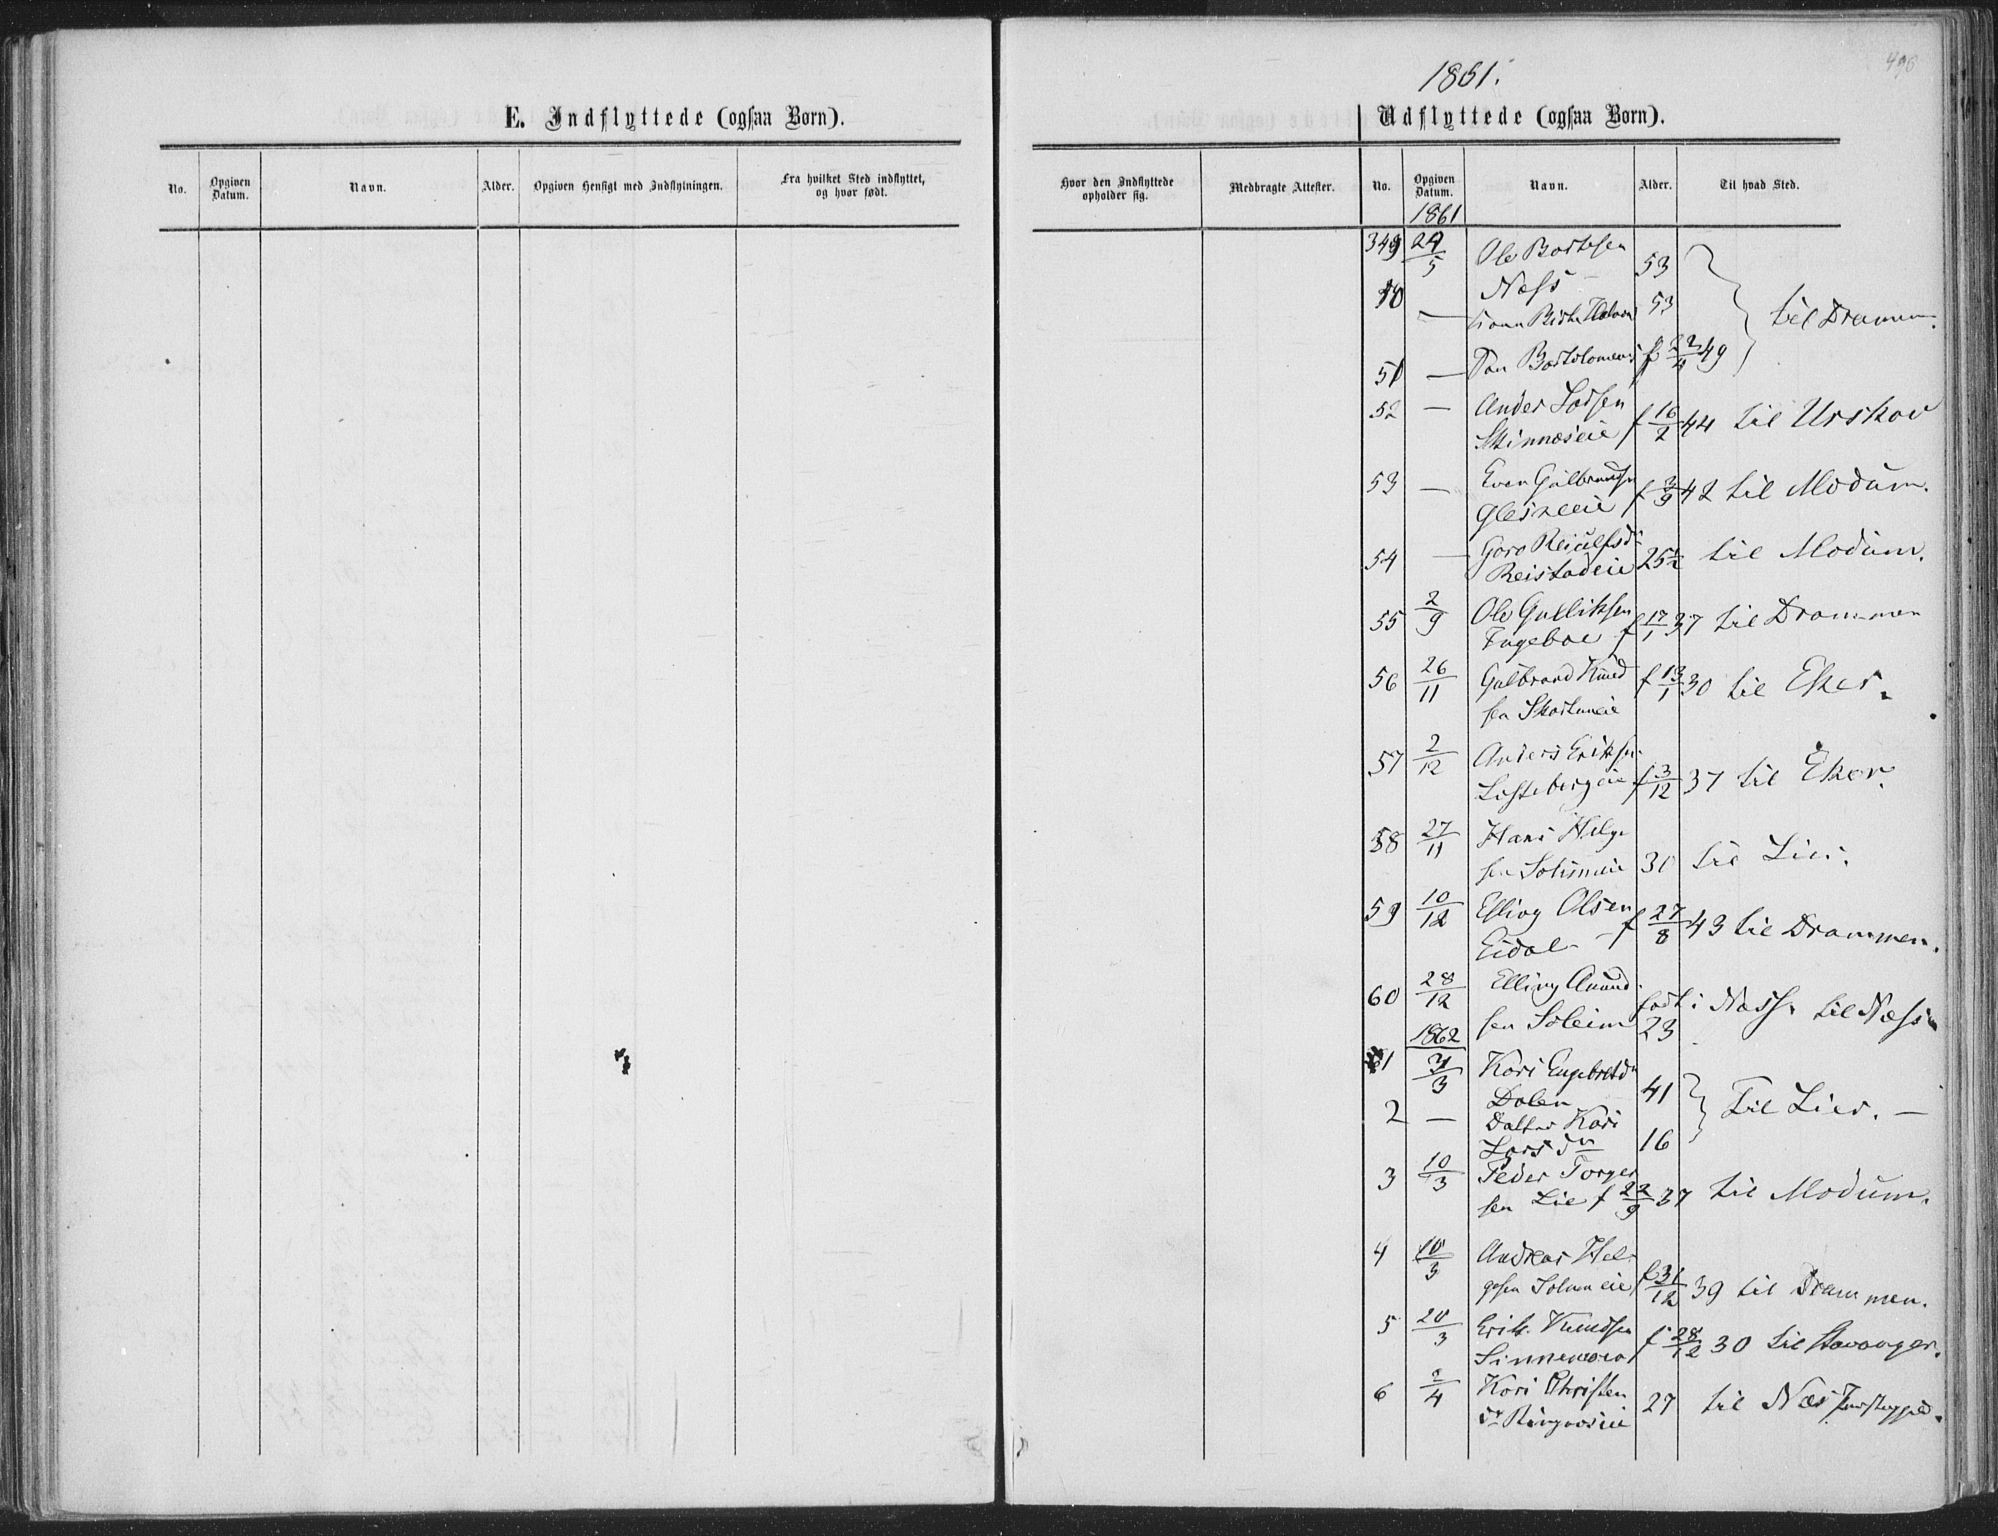 498
1861.
E. Indflyttede (ogsaa Børn).
Udflyttede (ogsaa Børn).
No. Opgiven Datum. Navn. Alder. Opgiven Hensigt med Indflytningen. Fra hvilket Sted indflyttet, og hvor født.
Hvor den Indflyttede opholder sig. Medbragte Attester. No. Opgiven Datum. Navn. Alder. Til hvad Sted.
1861
349 24/5 Ole
Næss 53
50 — 53 til Drammen.
51 — f 22/4 49
52 — Anders
f 16/2 44 til Urskov
53 — Even Gulbrandsen
Glesneeie f 3/9 42 til Modum.
54 — Goro
Reistadeie 25½ til Modum.
55 2/9 Ole Gulliksen
f 17/1 37 til Drammen
56 26/11 Gulbrand Knud
sen f 13/1 30 til Eker.
57 2/12 Anders Eriksen
f 3/12 37 til Eker.
58 27/11 Hans Helge
sen 31 til Lier.
59 10/12 Elling Olsen
Eidal f 27/8 43 til Drammen.
60 28/12 Elling Amund
sen Soleim født i Næss. 23 til Næss
1862
61 3/3 Kari Engebretsdr
Dalen 41
2 — Datter Kari
Larsdr 16 Til Lier. —
3 10/3 Peder Torger
sen Lie f 22/9 37 til Modum.
4 10/3 Andreas Hel
gesen f 31/12 39 til Drammen.
5 20/3 Erik Knudsen
f 28/12 30 til Stavanger.
6 2/4 Kari Christen
dr Ringnæseie 27 til Næs